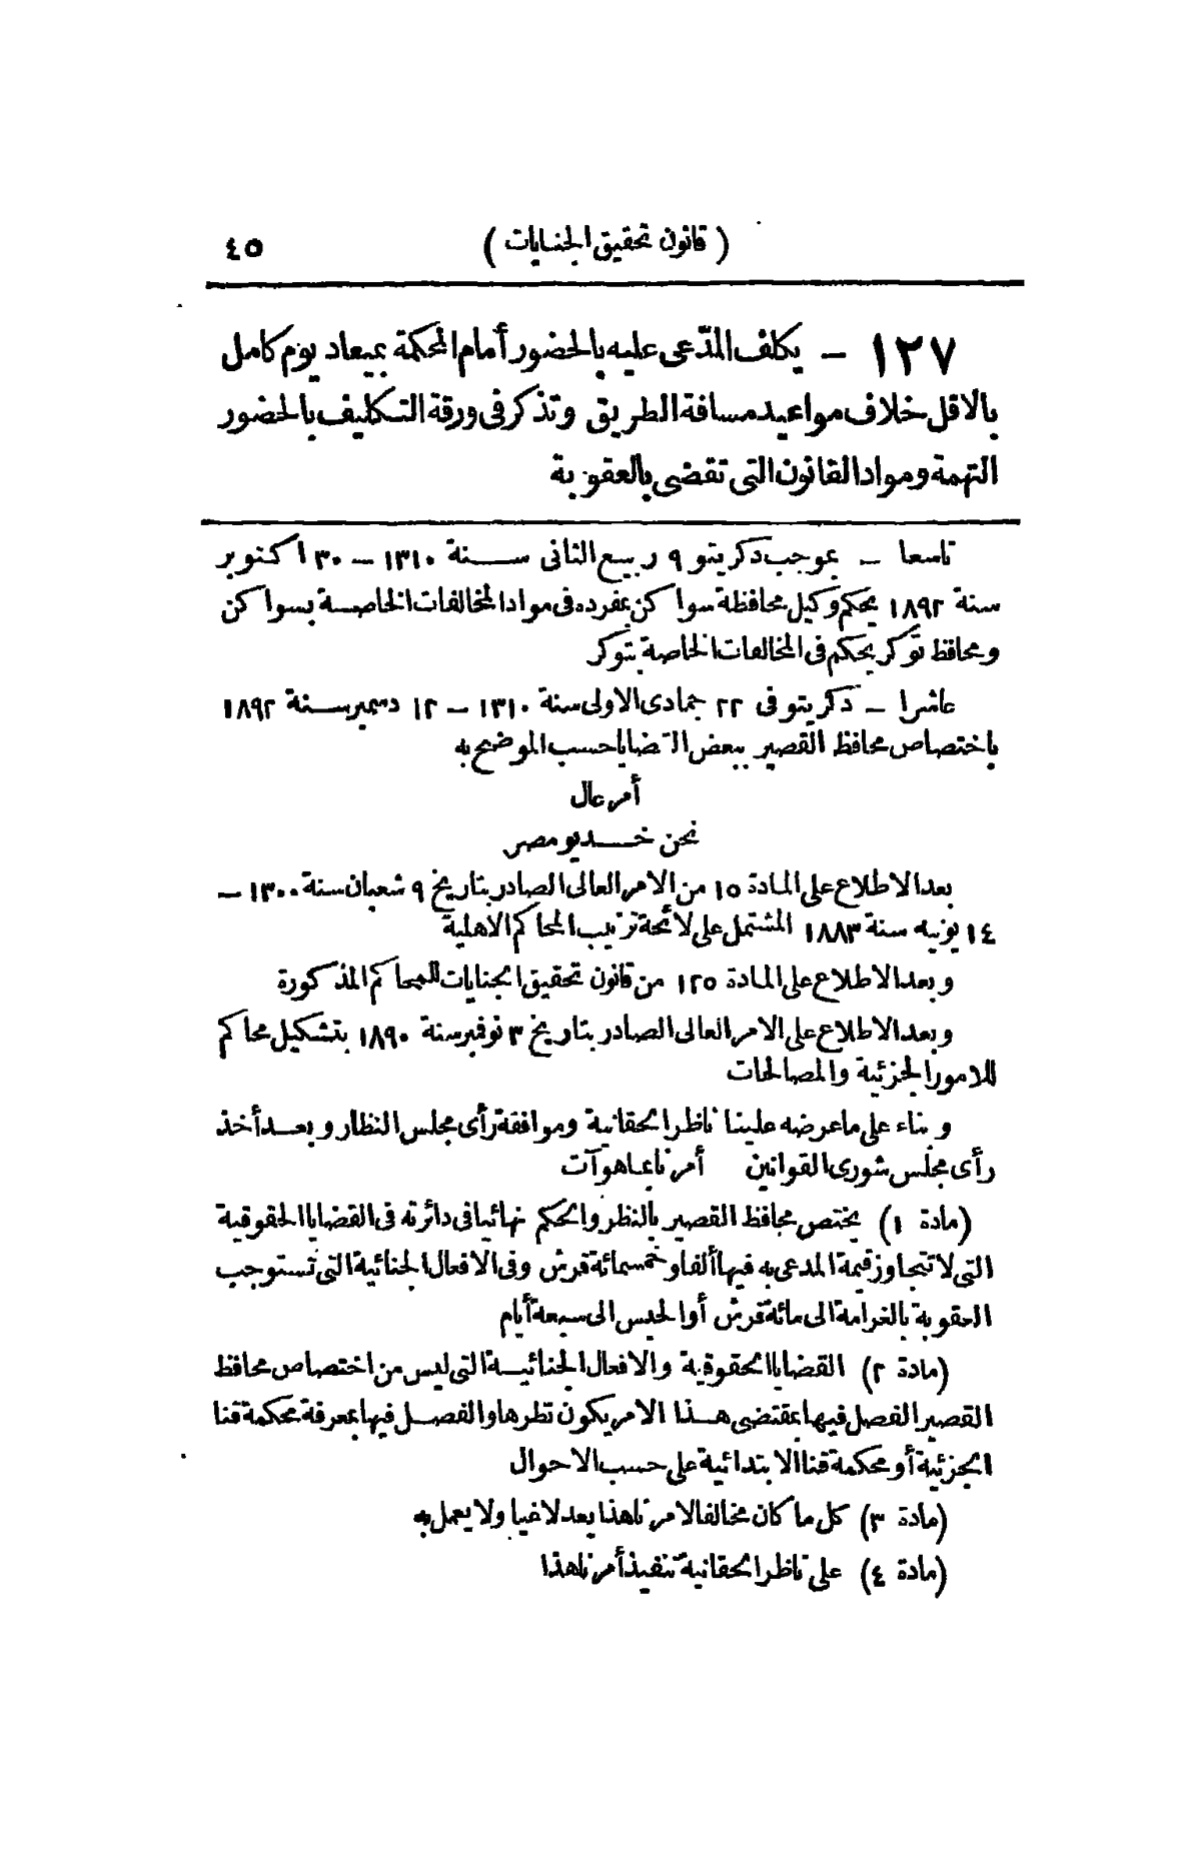 ( قانون تحقيق الجنايات )
٤٥
١٢٧ – يكلف المدّعى عليه بالحضور أمام المحكمة بميعاد يوم كامل
بالاقل خلاف مواعيد مسافة الطريق وتذكر فى ورقة التكليف بالحضور
التهمة ومواد القانون التى تقضى بالعقوبة
تاسعا – بموجب دكريتو ٩ ربيع الثانى سنة ١٣١٠ – ٣٠ اكتوبر
سنة ١٨٩٢ يحكم وكيل محافظة سواكن بمفرده فى مواد المخالفات الخاصة بسواكن
ومحافظ توكر يحكم فى المخالفات الخاصة بتوكر
عاشرا – دكريتو فى ٢٢ جمادى الاولى سنة ١٣١٠ – ١٢ دسمبر سنة ١٨٩٢
باختصاص محافظ القصير ببعض القضايا حسب الموضح به
أمر عال
نحن خديو مصر
بعد الاطلاع على المادة ١٥ من الامر العالى الصادر بتاريخ ٩ شعبان سنة ١٣٠٠ –
١٤ يونيه سنة ١٨٨٣ المشتمل على لائحة ترتيب المحاكم الاهلية
وبعد الاطلاع على المادة ١٢٥ من قانون تحقيق الجنايات للمحاكم المذكورة
وبعد الاطلاع على الامر العالى الصادر بتاريخ ٣ نوفمبر سنة ١٨٩٠ بتشكيل محاكم
للامور الجزئية والمصالحات
وبناء على ما عرضه علينا ناظر الحقانية وموافقة رأى مجلس النظار وبعد أخذ
رأى مجلس شورى القوانين أمرنا بما هو آت
(مادة ١) يختص محافظ القصير بالنظر والحكم نهائيا فى دائرته فى القضايا الحقوقية
التى لا تتجاوز قيمة المدعى به فيها ألفا وخمسمائة قرش وفى الافعال الجنائية التى تستوجب
العقوبة بالغرامة الى مائة قرش أو الحبس الى سبعة أيام
(مادة ٢) القضايا الحقوقية والافعال الجنائية التى ليس من اختصاص محافظ
القصير الفصل فيها بمقتضى هذا الامر يكون نظرها والفصل فيها بمعرفة محكمة قنا
الجزئية أو محكمة قنا الابتدائية على حسب الاحوال
(مادة ٣) كل ما كان مخالفا لامرنا هذا يعد لاغيا ولا يعمل به
(مادة ٤) على ناظر الحقانية تنفيذ أمرنا هذا